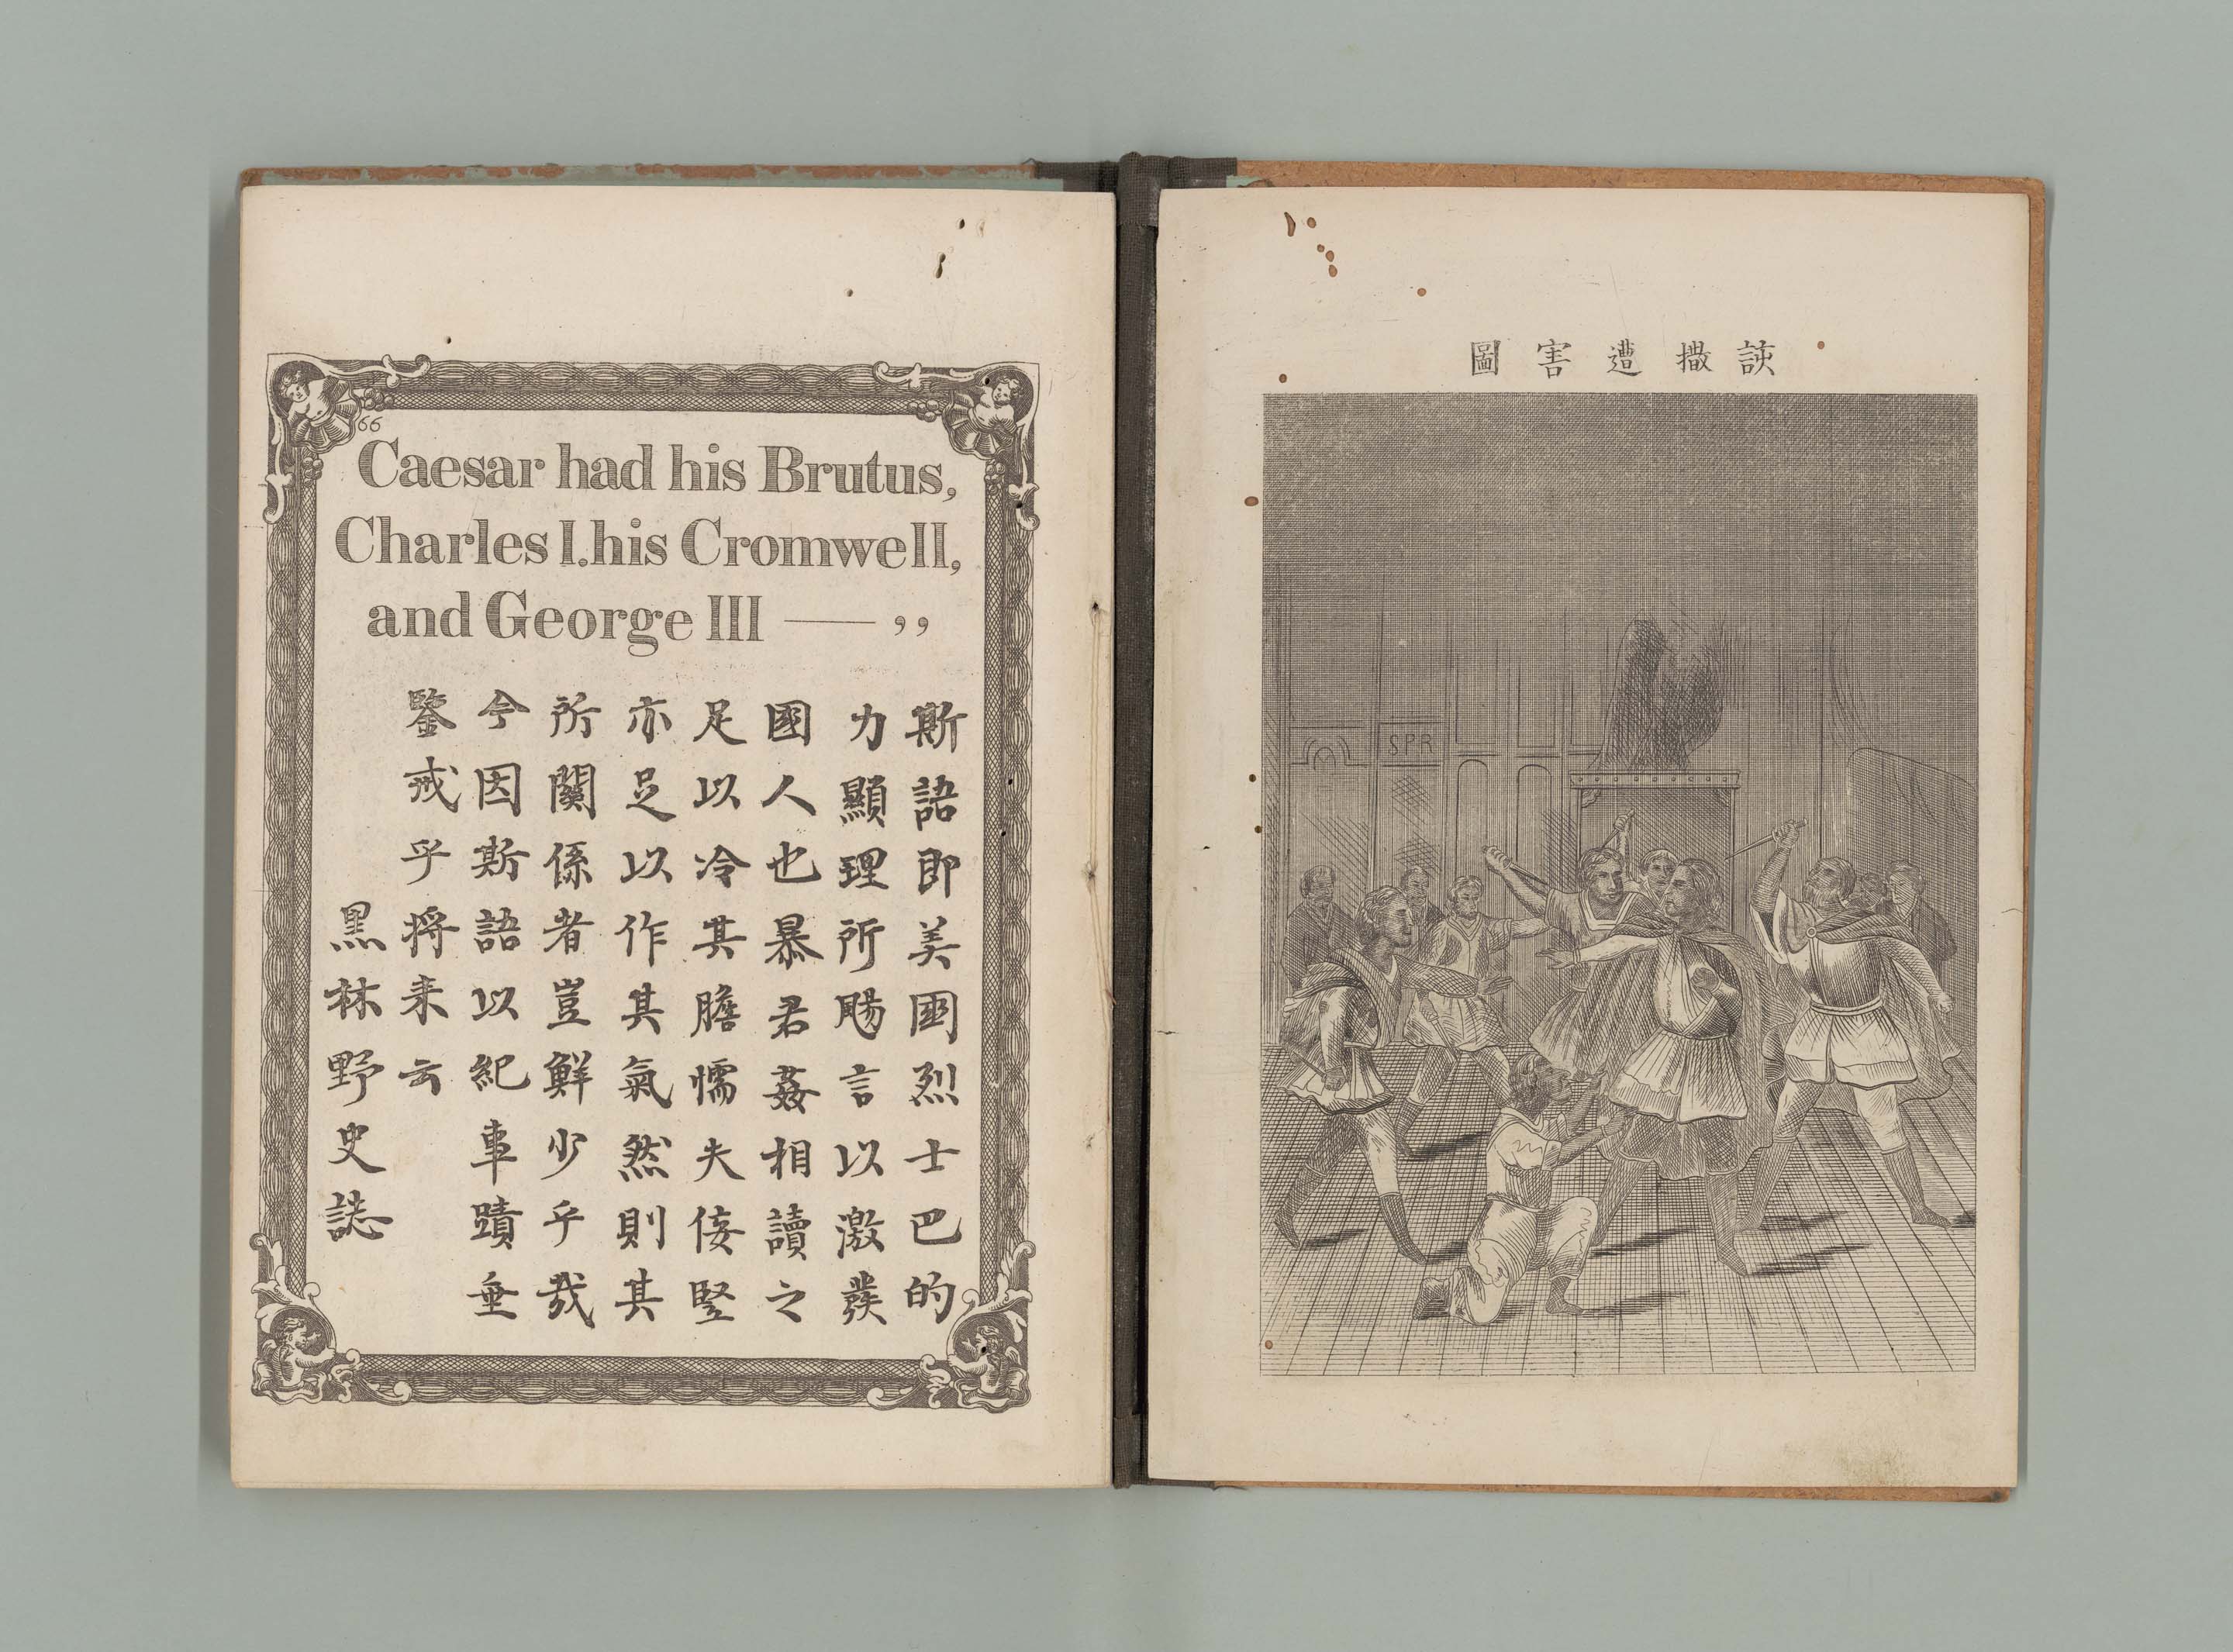 該撒遭害圖
SPR
“Caesar had his Brutus,
Charles I. his Cromwell,
and George III — ”
斯語即美國烈士巴的
力顯理所颺言以激發
國人也暴君姦相讀之
足以冷其膽懦夫侫竪
亦足以作其氣然則其
所關係者豈鮮少乎哉
今因斯語以紀事蹟垂
鑒戒乎将来云
黒林野史誌